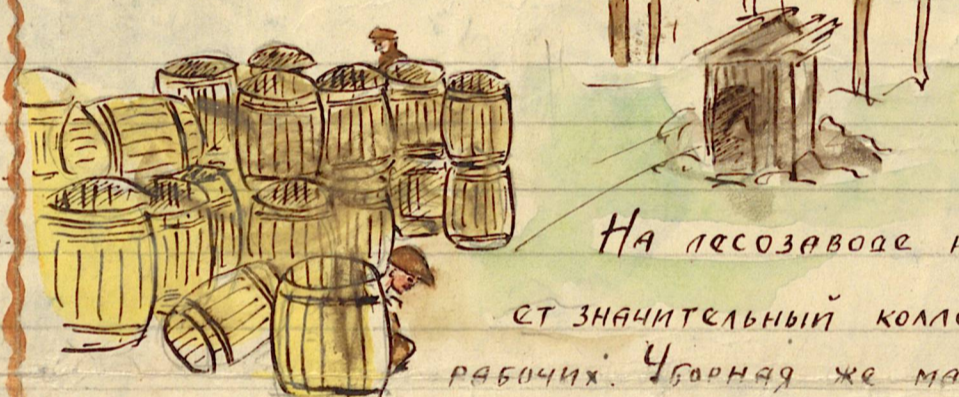 На лесозаводе
ет значительный колле
рабочих. Уборная же ма